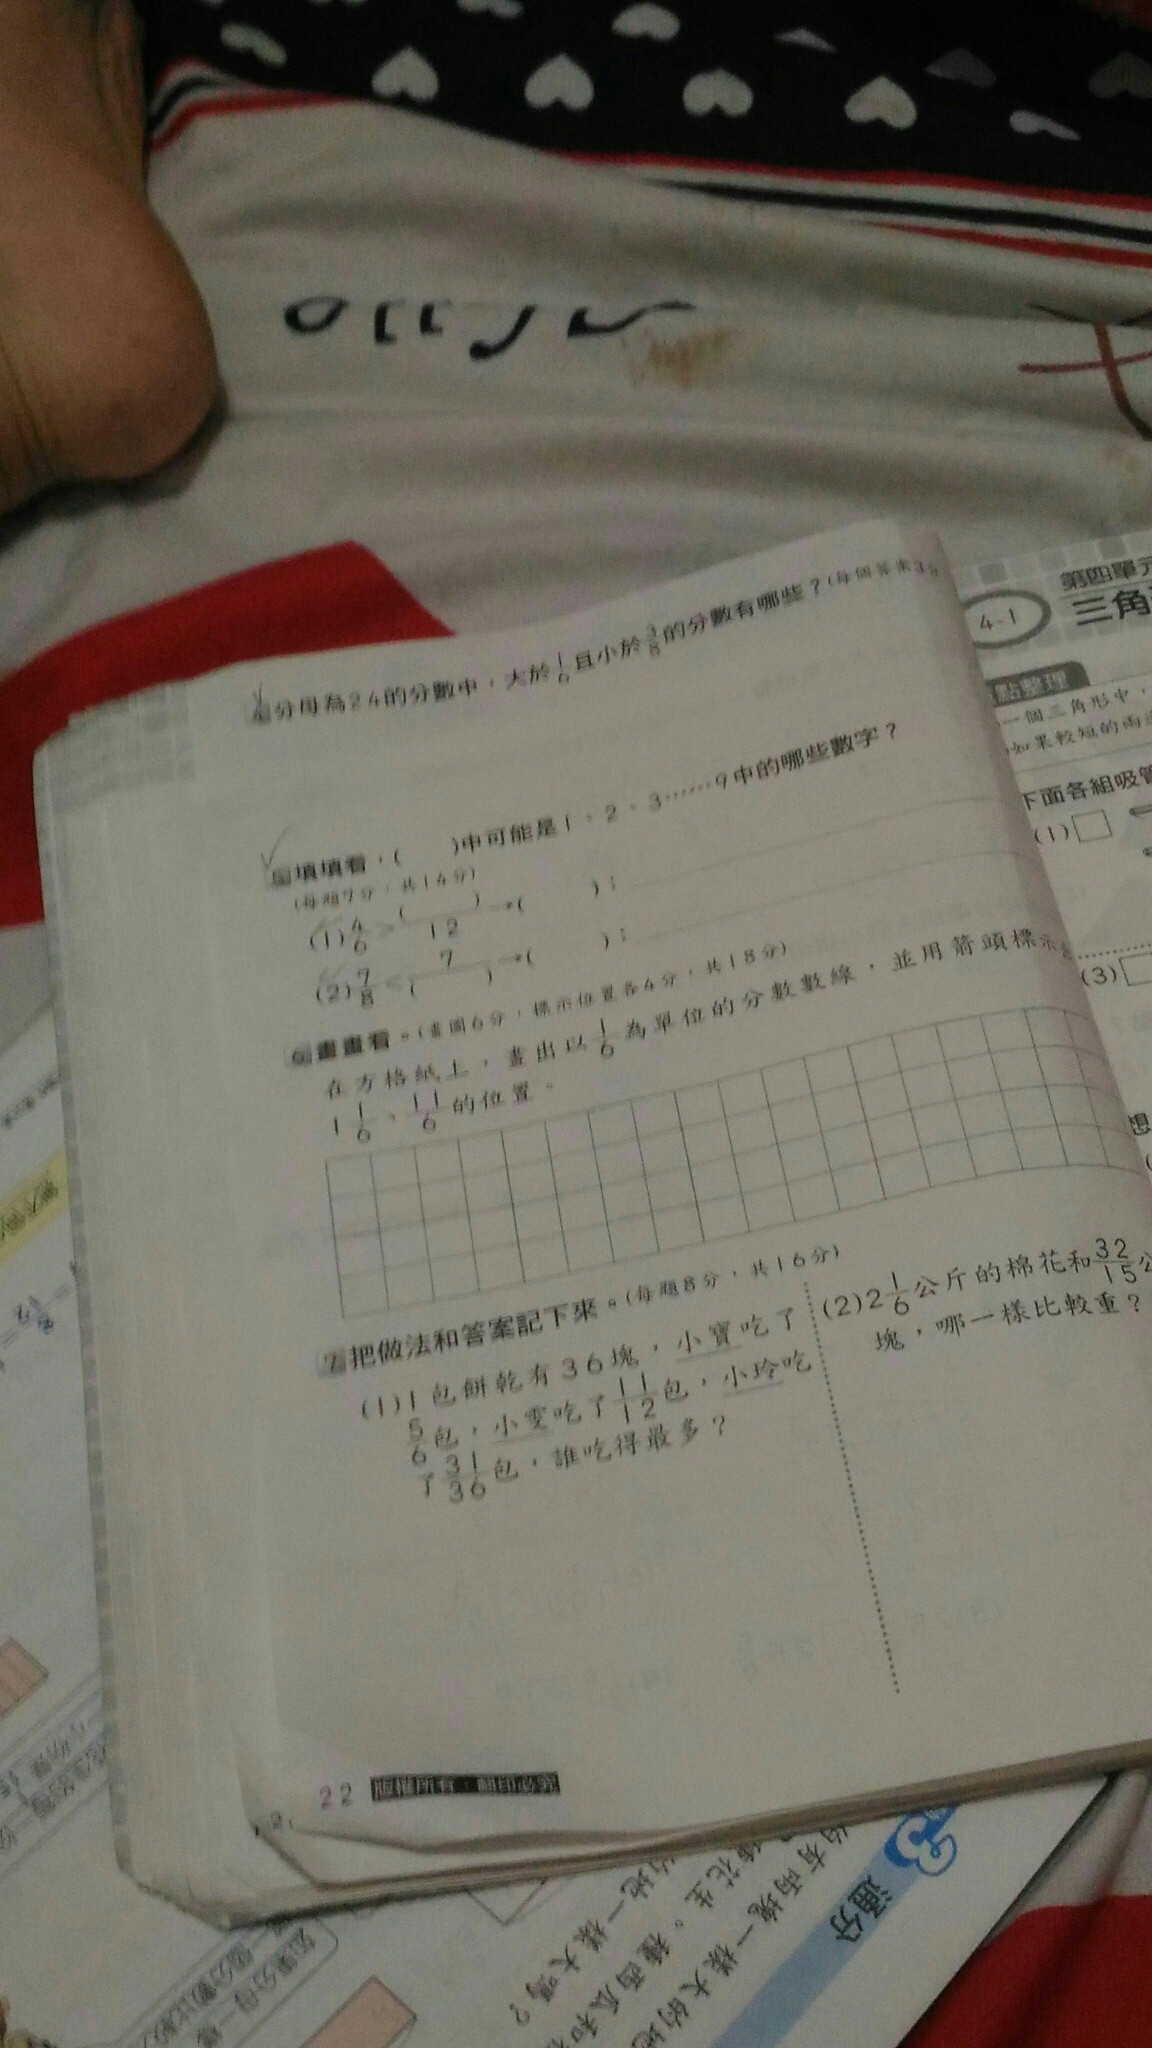 分母為24的分數中,大於1/6且小於3/8的分數有哪些?(每個答案3分
填填看,(　　)中可能是1、2、3……9中的哪些數字?
(每題7分,共14分)
(1)4/6>(　　)/12→(　　);
(2)7/8<7/(　　)→(　　);
畫畫看。(畫圖6分,標示位置各4分,共18分)
在方格紙上,畫出以1/6為單位的分數數線,並用箭頭標示
1 1/6、11/6的位置。
7 把做法和答案記下來。(每題8分,共16分)
(1)1包餅乾有36塊,小寶吃了
5/6包,小雯吃了11/12包,小玲吃
了31/36包,誰吃得最多?
(2)2 1/6公斤的棉花和32/15公
塊,哪一樣比較重?
22 版權所有・翻印必究
第四單元
4-1 三角
點整理
一個三角形中,
如果較短的兩
下面各組吸管
(1)
(3)
想
3 通分
均有兩塊一樣大的地
花生。種西瓜和
的地一樣大嗎?
如果分母一樣